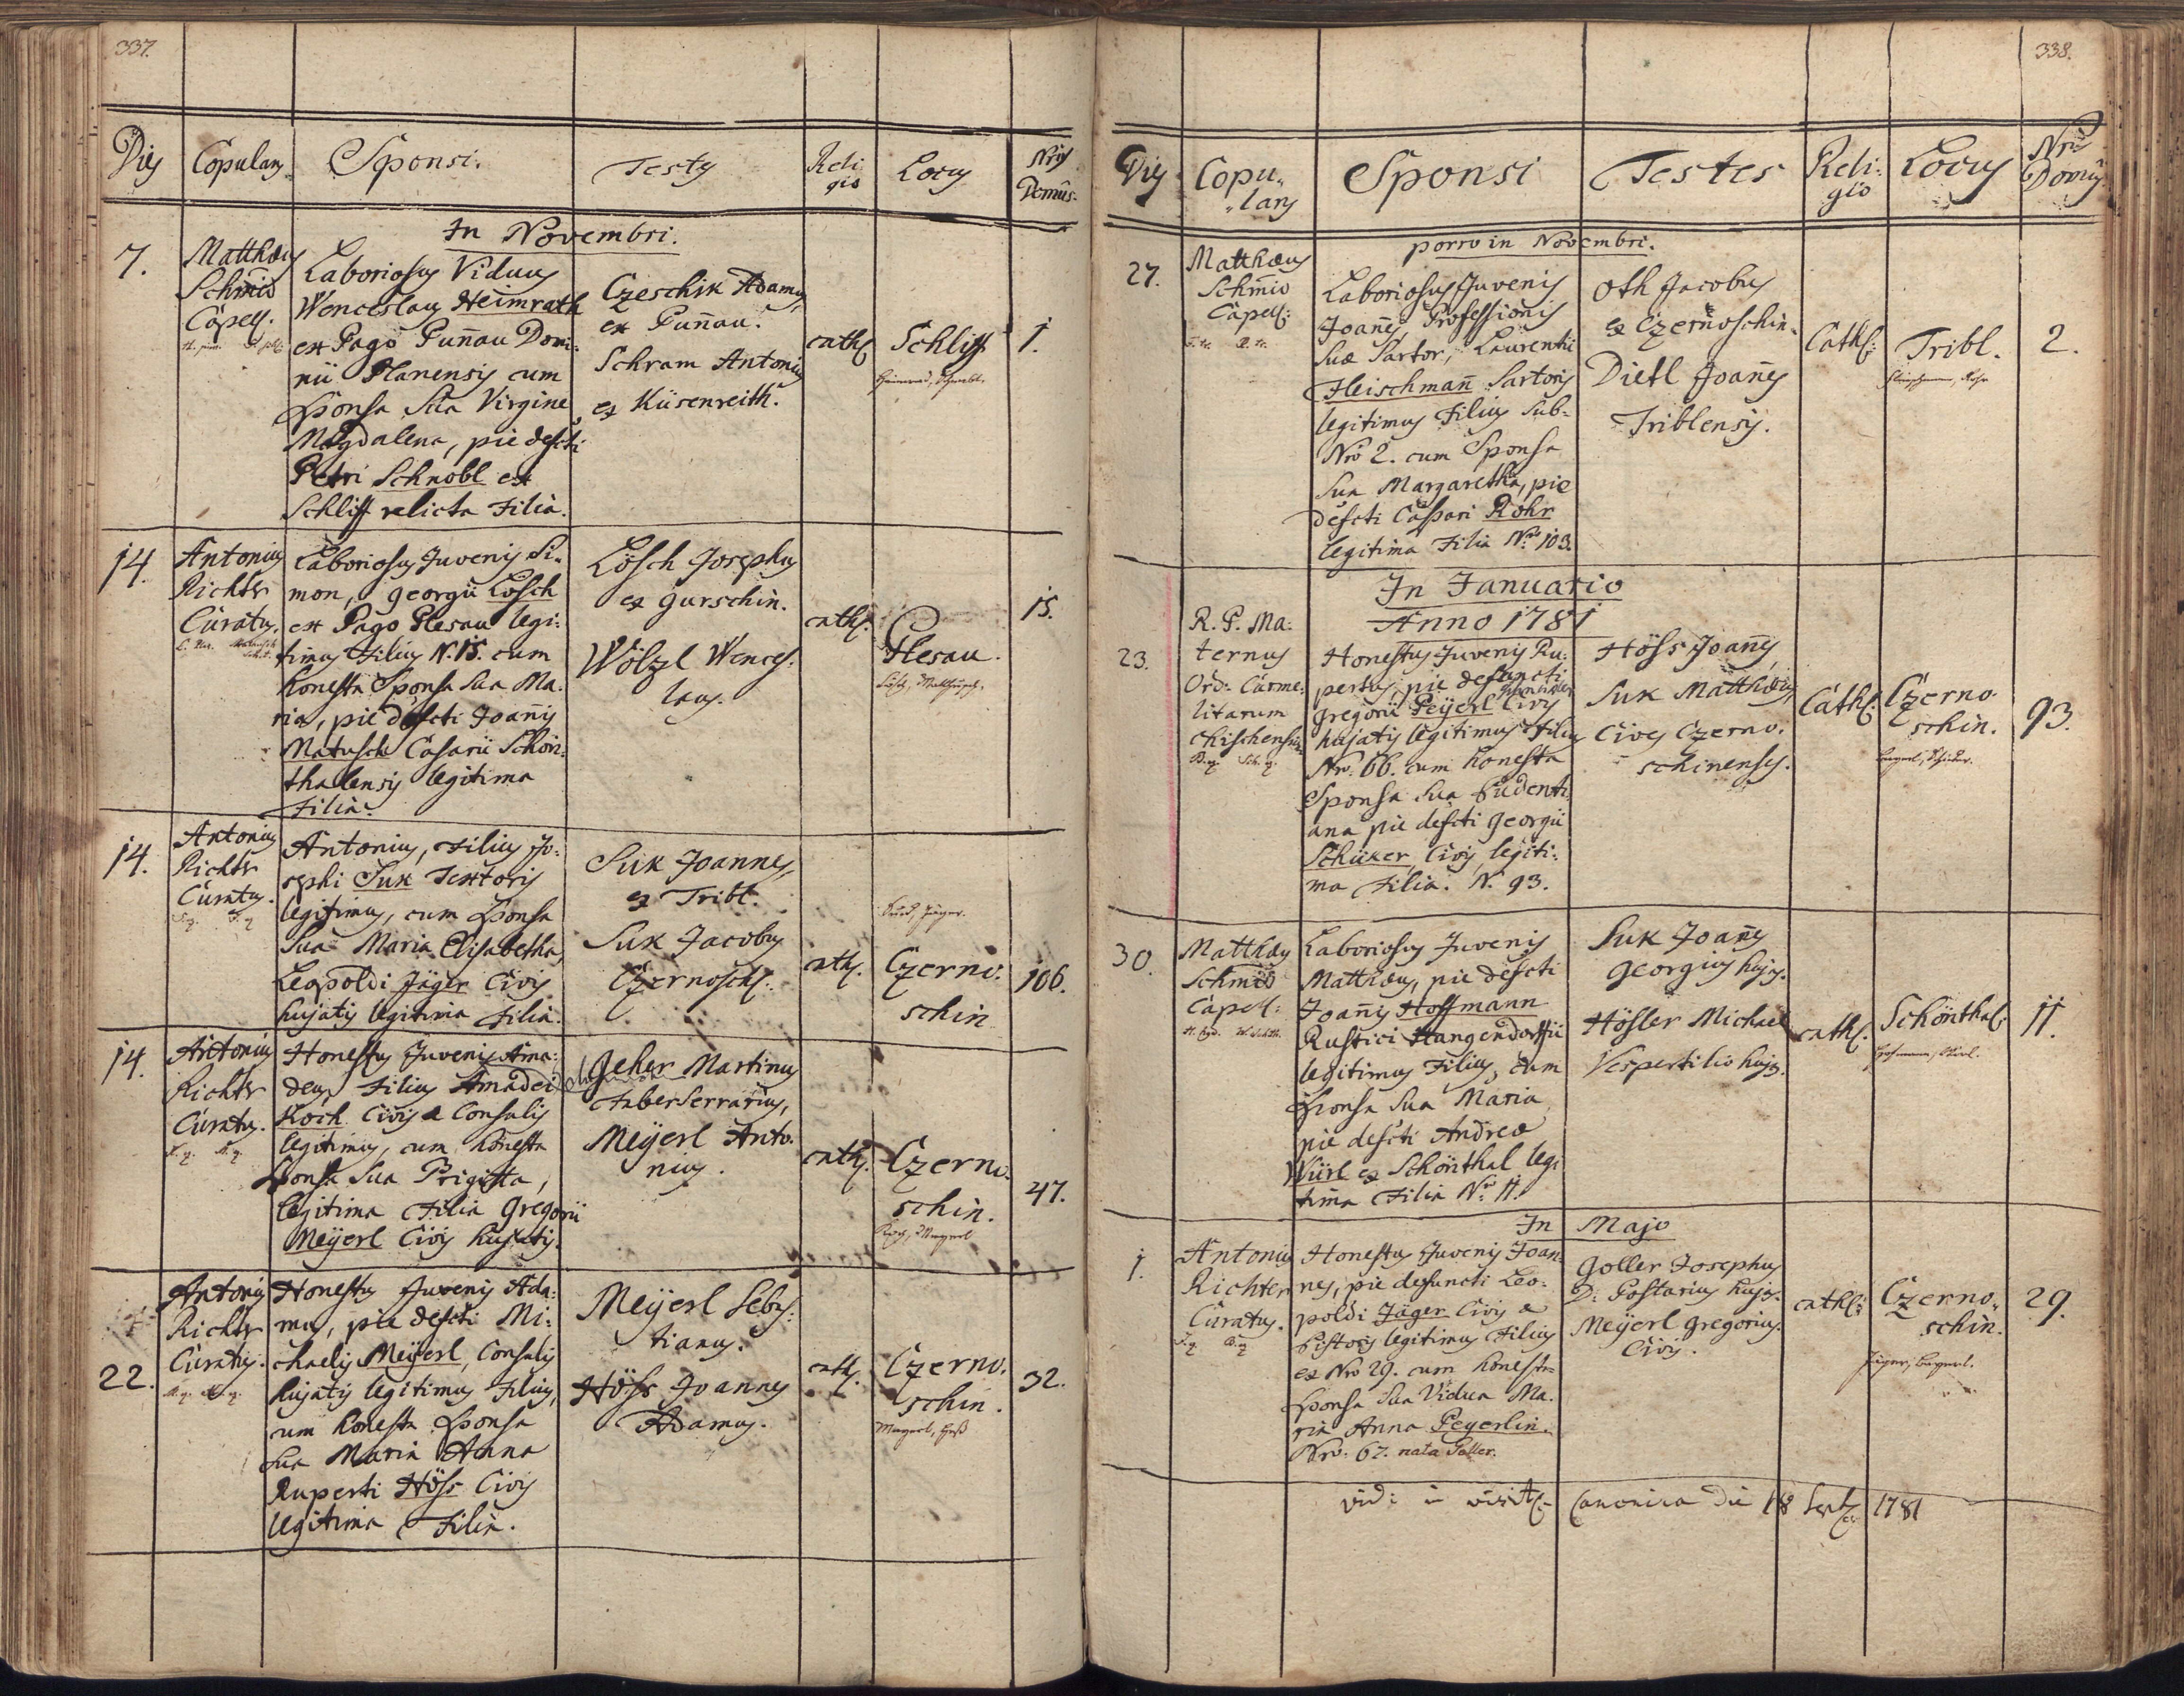 337.
Dies Copulans Sponsi. Testes Religio Locus Nris Domûs.
In Novembri.
7.
Matthæus
Schmid
Capell.
Laboriosus Viduus
Wenceslaus Heimrath
ex Pago Punnau Domi:
nii Planensis cum
Sponsa Sua Virgine
Magdalena, pie defcti
Petri Schnobl ex
Schliff relicta Filia.
Czeschik Adamus
ex Punnau.
Schram Antonius
ex Küsenreith.
cath.
Schliff
1.
14.
Antonius
Richter
Curatus.
Laboriosus Juvenis Si:
mon, Georgii Lösch
ex Pago Plesau legi:
timus Filius N. 15. cum
honesta Sponsa Sua Ma:
ria, pie defcti Joannis
Matusch Casarii Schön:
thallensis legitima
Filia.
Lösch Josephus
ex Gurschin.
Wölzl Wences:
laus.
cath.
Plesau.
15.
14.
Antonius
Richter
Curatus.
Antonius, Filius Jo:
sephi Suk Textoris
legitimus, cum Sponsa
Sua Maria Elisabetha,
Leopoldi Jäger Civis
hujatis legitima Filia.
Suk Joannes,
ex Tribl.
Suk Jacobus
Czernosch.
cath.
Czerno:
schin
106.
14.
Antonius
Richter
Curatus.
Honestus Juvenis Ama:
deus, Filius Amadei
Koch Civis & Consulis
legitimus, cum honesta
Sponsa Sua Prigitta,
legitima Filia Gregorii
Meÿerl Civis hujatis.
Geher Martinus
Faber Serrarius,
Meÿerl Anto:
nius.
cath.
Czerno:
schin.
47.
22.
Antonius
Richter
Curatus.
Honestus Juvenis Ada:
mus, pie defcti Mi:
chaelis Meÿerl, Consulis
hujatis legitimus Filius,
cum honesta Sponsa
Sua Maria Anna
Ruperti Höss Civis
legitima Filia.
Meÿerl Sebas:
tianus.
Höss Joannes
Adamus.
cath.
Czerno:
schin.
32.
338.
Dies Copu:
lans Sponsi Testes Reli:
gio Locus Nrus
Domus
porro in Novembri.
27.
Matthæus
Schmid
Capell:
Laboriosus Juvenis
Joannes, Professionis
Suæ Sartor, Laurentii
Fleischmann Sartoris
legitimus Filius Sub
Nro 2. cum Sponsa
Sua Margaretha, pie
defcti Caspari Rohr
legitima Filia Nro 103.
Oth Jacobus
ex Czernoschin.
Dietl Joannes
Triblensis.
Cath:
Tribl.
2.
In Januario
Anno 1781
23.
R. P. Ma:
ternus
Ord: Carme:
litarum
Chischensis
Honestus Juvenis Ru:
pertus, pie defuncti
Gregorii Peÿerl Civis
hujatis legitimus Filius
Nro. 66. cum honesta
Sponsa Sua Pudenti
ana pie defcti Georgii
Schücker, Civis legiti:
ma Filia. N. 93.
Höss Joannes,
Suk Matthæus,
Cives Czerno.
schinenses.
Cath:
Czerno
schin.
93.
30.
Matthæus
Schmid
Capell:
Laboriosus Juvenis
Matthæus, pie defcti
Joannis Hoffmann
Rustici Hangendorfii
legitimus Filius, cum
Sponsa Sua Maria
pie defcti Andreæ
Würl ex Schönthal legi
tima Filia Nro 11.
Suk Joannes
Georgius hujas.
Hösler Michael
Vespertilio hujas.
cath.
Schönthal:
11.
In Majo
1.
Antonius
Richter
Curatus.
Honestus Juvenis Joan
nes, pie defuncti Leo:
poldi Jäger Civis &
Pistoris legitimus Filius
ex Nro 29. cum honesta
Sponsa Sua Vidua Ma:
ria Anna Peyerlin.
Nro. 67. nata Goller.
Goller Josephus
D: Postarius hujas.
Meÿerl Gregorius
Civis.
cath:
Czerno
schin.
Jäger, Bayerl.
29.
vidi in visit: Canonica die 18 Sept: 1781